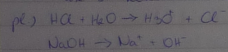 př) HCl + H₂O → H₃O⁺ + Cl⁻
NaOH → Na⁺ + OH⁻